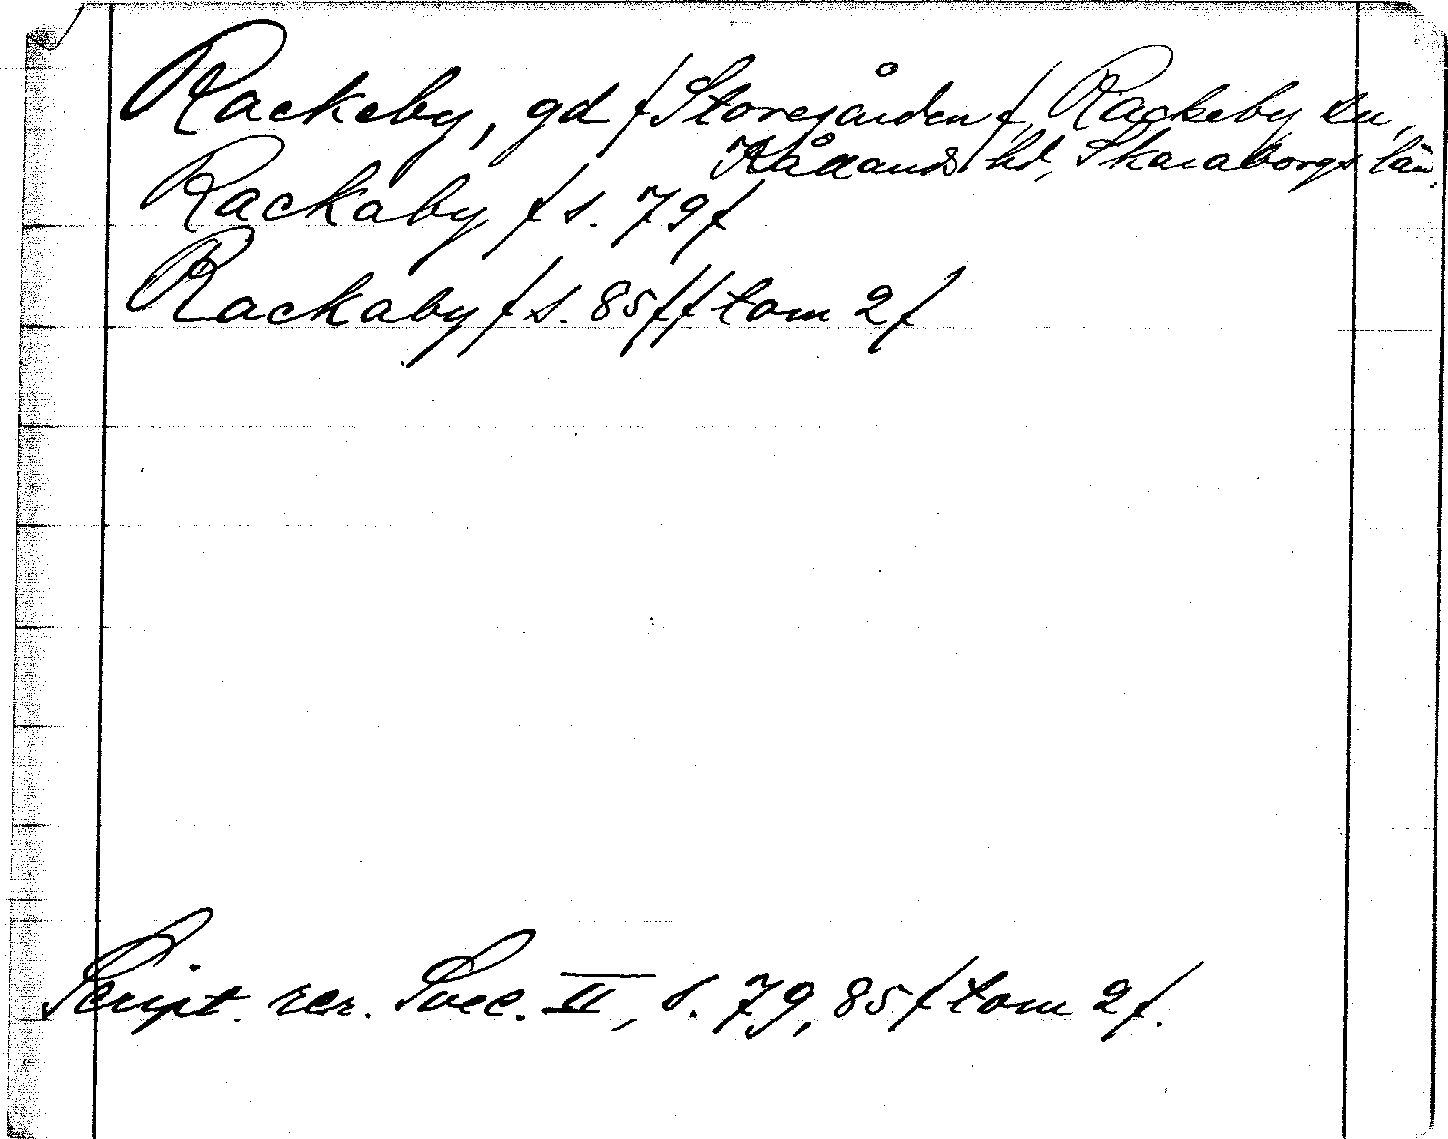 Rackeby, gd /Storegården/, Rackeby sn,
Kållands hd, Skaraborgs län.
Rackaby /s. 79/
Rackaby /s. 85/ /tom 2/
Script. rer. Svec. II, s. 79, 85 /tom 2/.